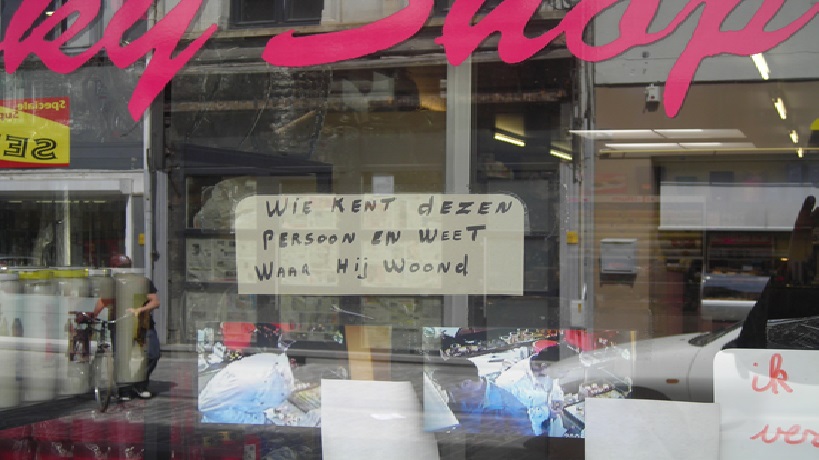 ky Shop
WiE KENT dEZEN
PERSOON EN WEET
WAAR Hij WOOND
ik